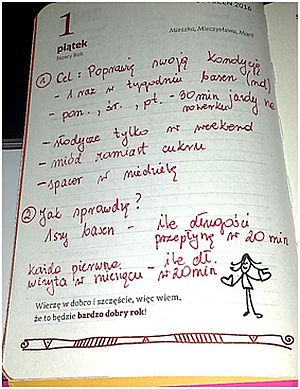 CZEŃ 2016
1
piątek
Nowy Rok
Mieszka, Mieczysława, Marii
① Cel: Poprawię swoją kondycję
- 1 raz w tygodniu basen (nd)
- pon., śr., pt. - 30 min jazdy na rowerku
- słodycze tylko w weekend
- miód zamiast cukru
- spacer w niedzielę
② Jak sprawdzę?
1szy basen - ile długości przepłynę w 20 min
każda pierwsza wizyta w miesiącu - ile dł. w 20 min
Wierzę w dobro i szczęście, więc wiem,
że to będzie bardzo dobry rok!